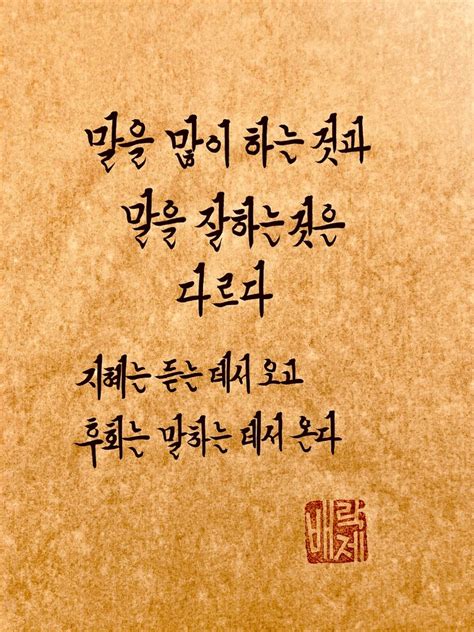 말을 많이 하는 것과
말을 잘하는것은
다르다
지혜는 듣는 데서 오고
후회는 말하는 데서 온다
배락제